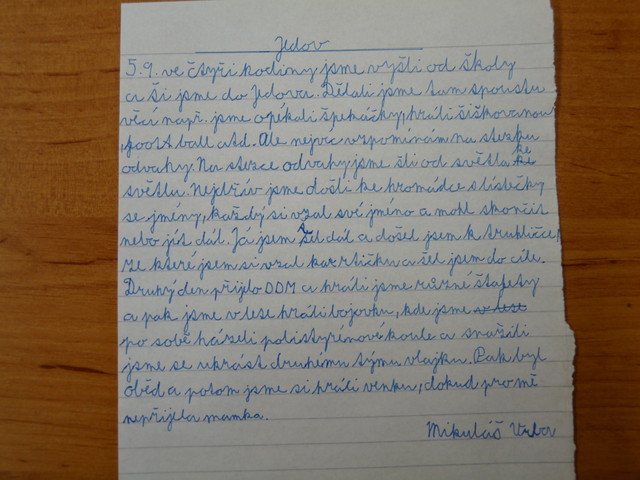 Jedov
5.9. ve čtyři hodiny jsme vyšli od školy
a ši jsme do Jedova. Dělali jsme tam spoustu
věcí např. jsme opékali špekáčky, hráli šiškovanou,
foost ball atd. Ale nejvíc vzpomínám na stezku
odvahy. Na stezce odvahy jsme šli od světla ke
světlu. Nejdřív jsme došli ke hromádce s lístečky
se jmény, každý si vzal své jméno a mohl skončit
nebo jít dál. Já jsem šel dál a došel jsem k truhličce,
ze které jsem si vzal kartičku a šel jsem do cíle.
Druhý den přijelo DDM a hráli jsme různé štafety
a pak jsme v lese hráli bojovku, kde jsme v lese
po sobě házeli polistyrénové koule a snažili
jsme se ukrást druhému týmu vlajku. Pak byl
oběd a potom jsme si hráli venku, dokud pro mě
nepřijela mamka.
Mikuláš Vrba